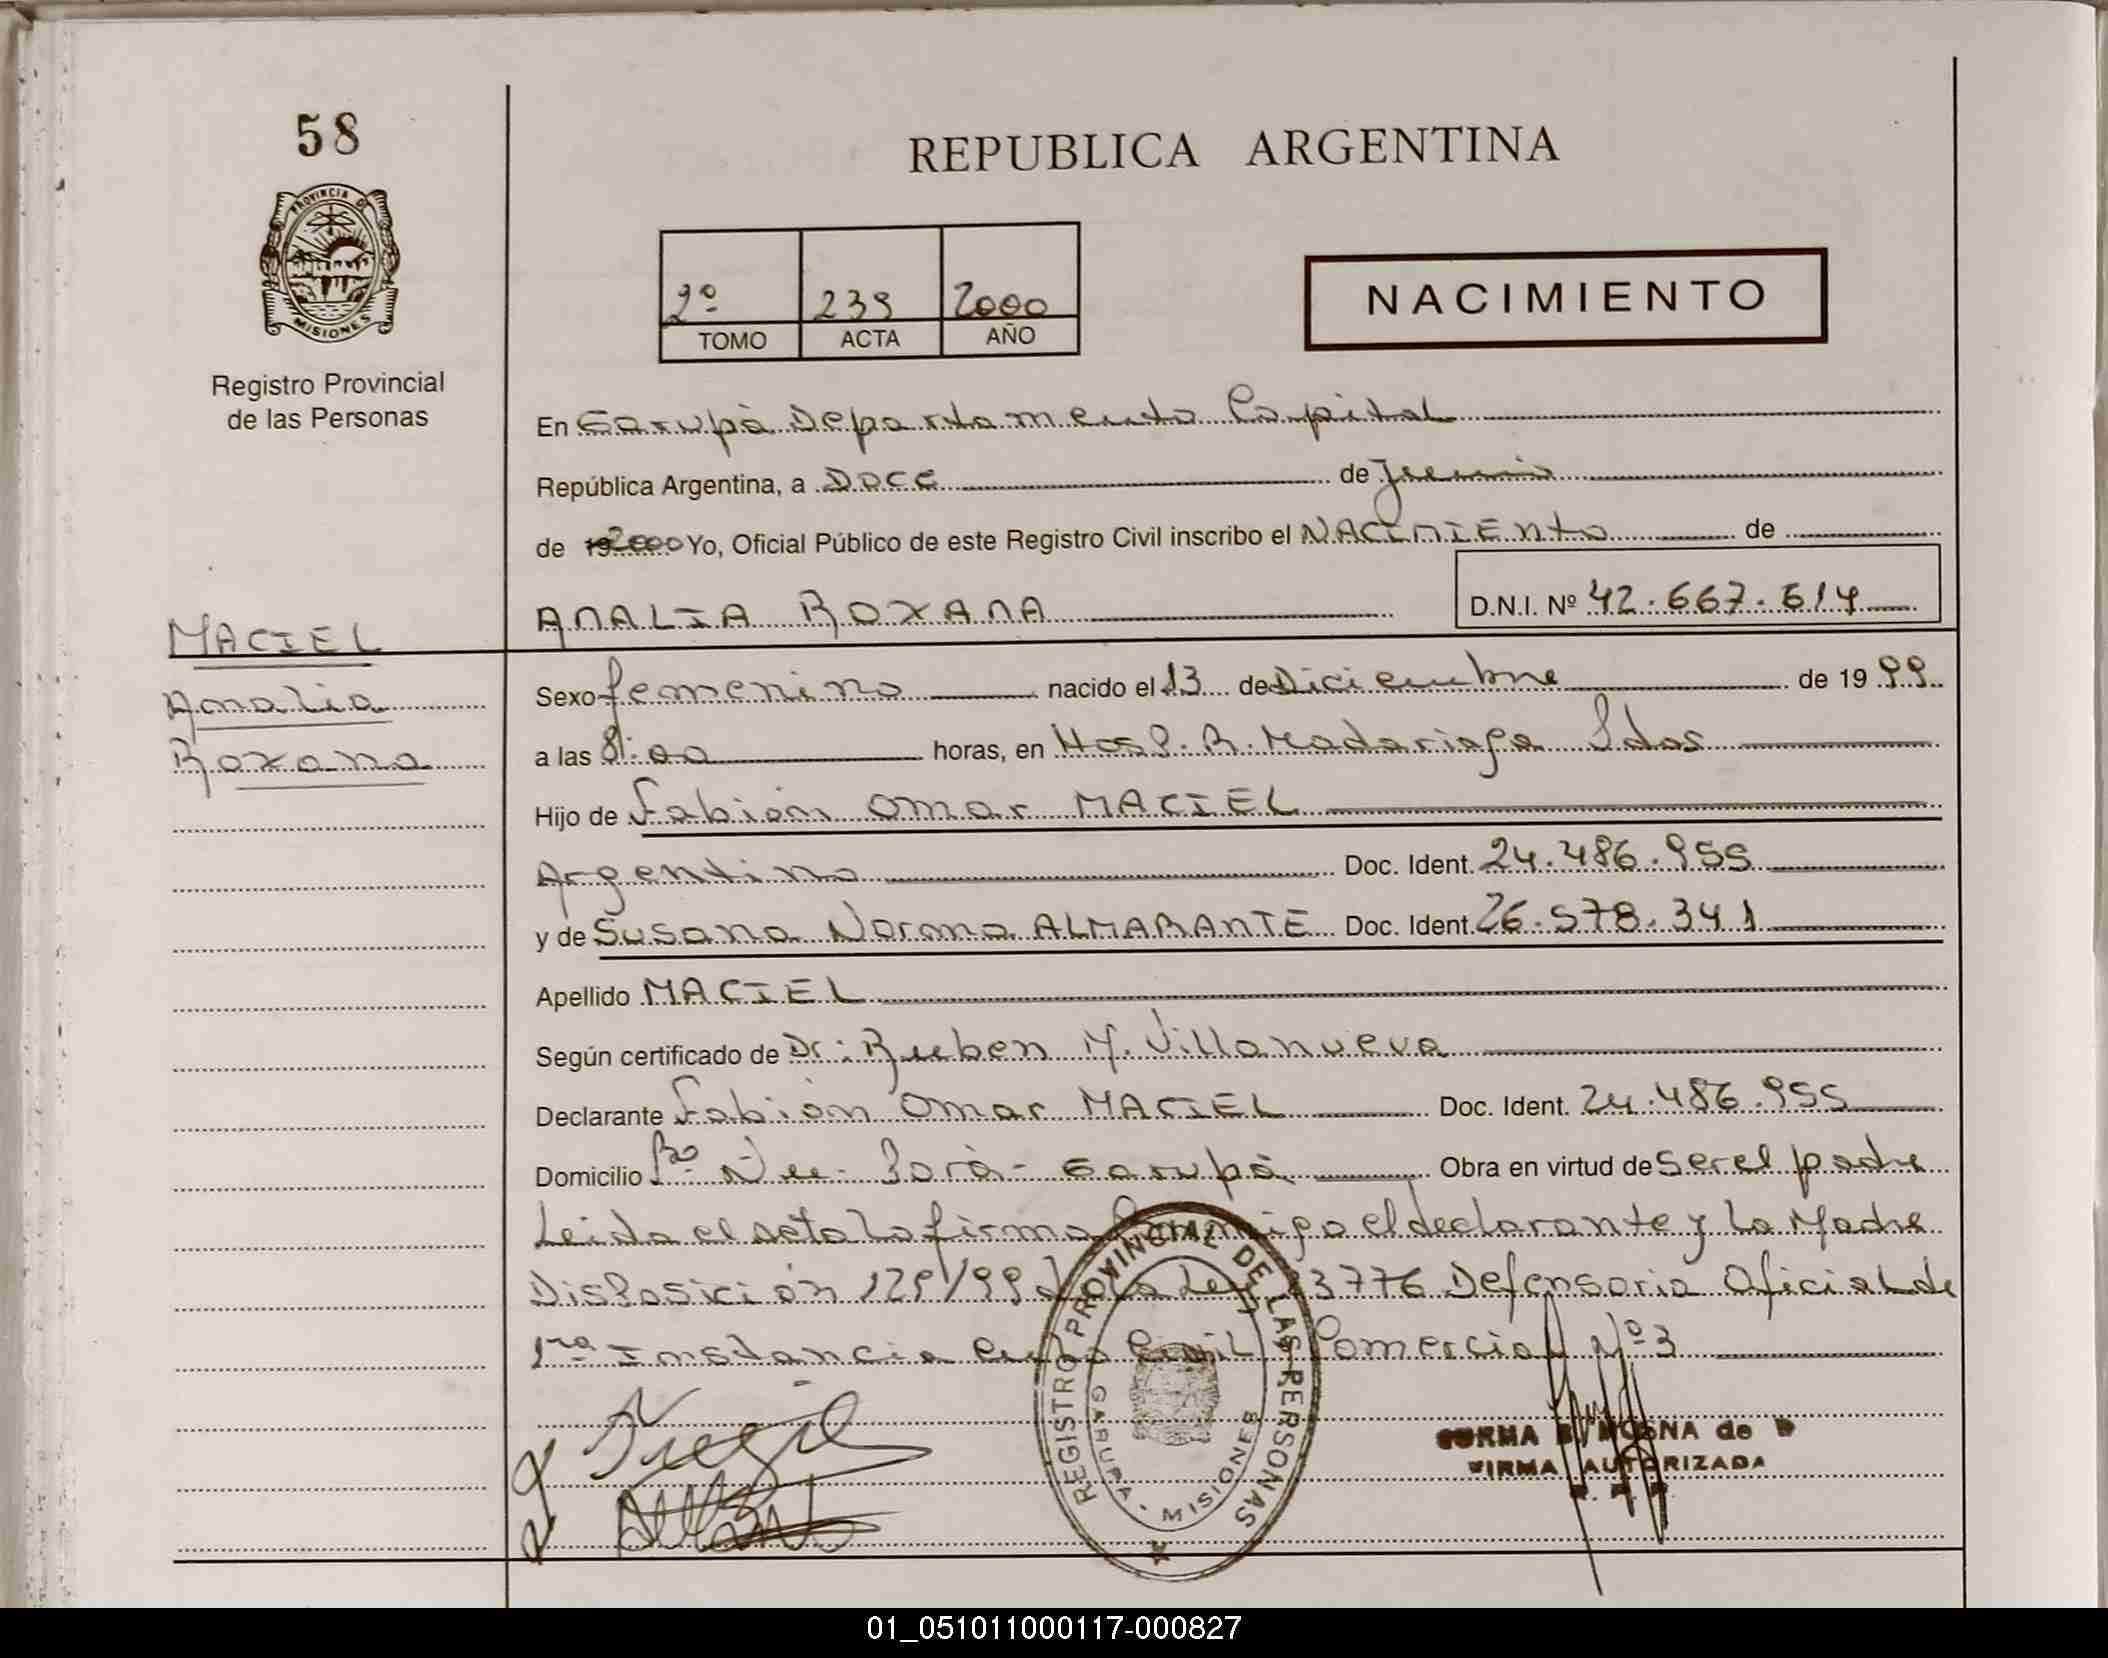 58
PROVINCIA D
MISIONES
Registro Provincial
de las Personas
REPUBLICA ARGENTINA
2º 239 2000
TOMO ACTA AÑO
NACIMIENTO
En Garupà Departamento Capital
República Argentina, a Doce de Junio
de 192000 Yo, Oficial Público de este Registro Civil inscribo el NACIMIENto de
ANALIA ROXANA D.N.I. Nº 42.667.614
MACIEL
Analia
Roxana
Sexo femenino nacido el 13 de Diciembre de 1999
a las 8:00 horas, en Hosp. R. Madariaga Pdas
Hijo de Fabián Omar MACIEL
Argentino Doc. Ident. 24.486.955
y de Susana Norma ALMARANTE Doc. Ident. 26.578.341
Apellido MACIEL
Según certificado de Dr: Rueben M. Villanueva
Declarante Fabián Omar MACIEL Doc. Ident. 24.486.955
Domicilio Bº Ñu-Porà-Garupà Obra en virtud de ser el padre
Leida el acta La firma Conmigo el declarante y La Madre
Disposición 129/99 de La Ley 23776 Defensoria Oficial de
1ra Instancia en lo Civil y Comercial Nº 3
REGISTRO PROVINCIAL DE LAS PERSONAS
GARUPA - MISIONES
NORMA de D
FIRMA AUTORIZADA
01_051011000117-000827